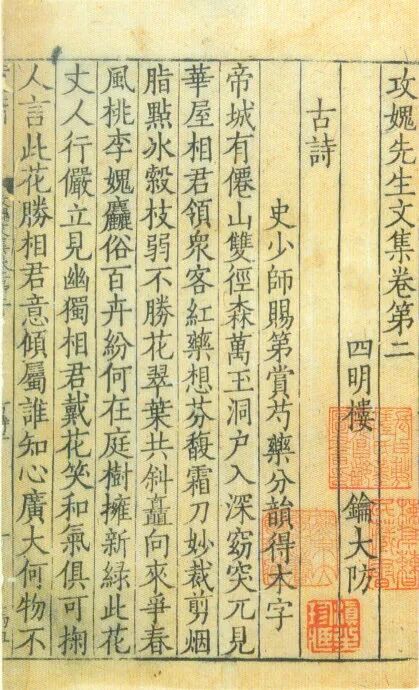 攻媿先生文集卷第二
四明樓 鑰大防
古詩
史少師賜第賞芍藥分韻得木字
帝城有僊山雙徑森萬玉洞户入深窈突兀見
華屋相君領衆客紅藥想芬馥霜刀妙裁剪烟
脂點冰縠枝弱不勝花翠葉共斜矗向來爭春
風桃李媿麤俗百卉紛何在庭樹擁新綠此花
丈人行儼立見幽獨相君戴花笑和氣俱可掬
人言此花勝相君意傾屬誰知心廣大何物不